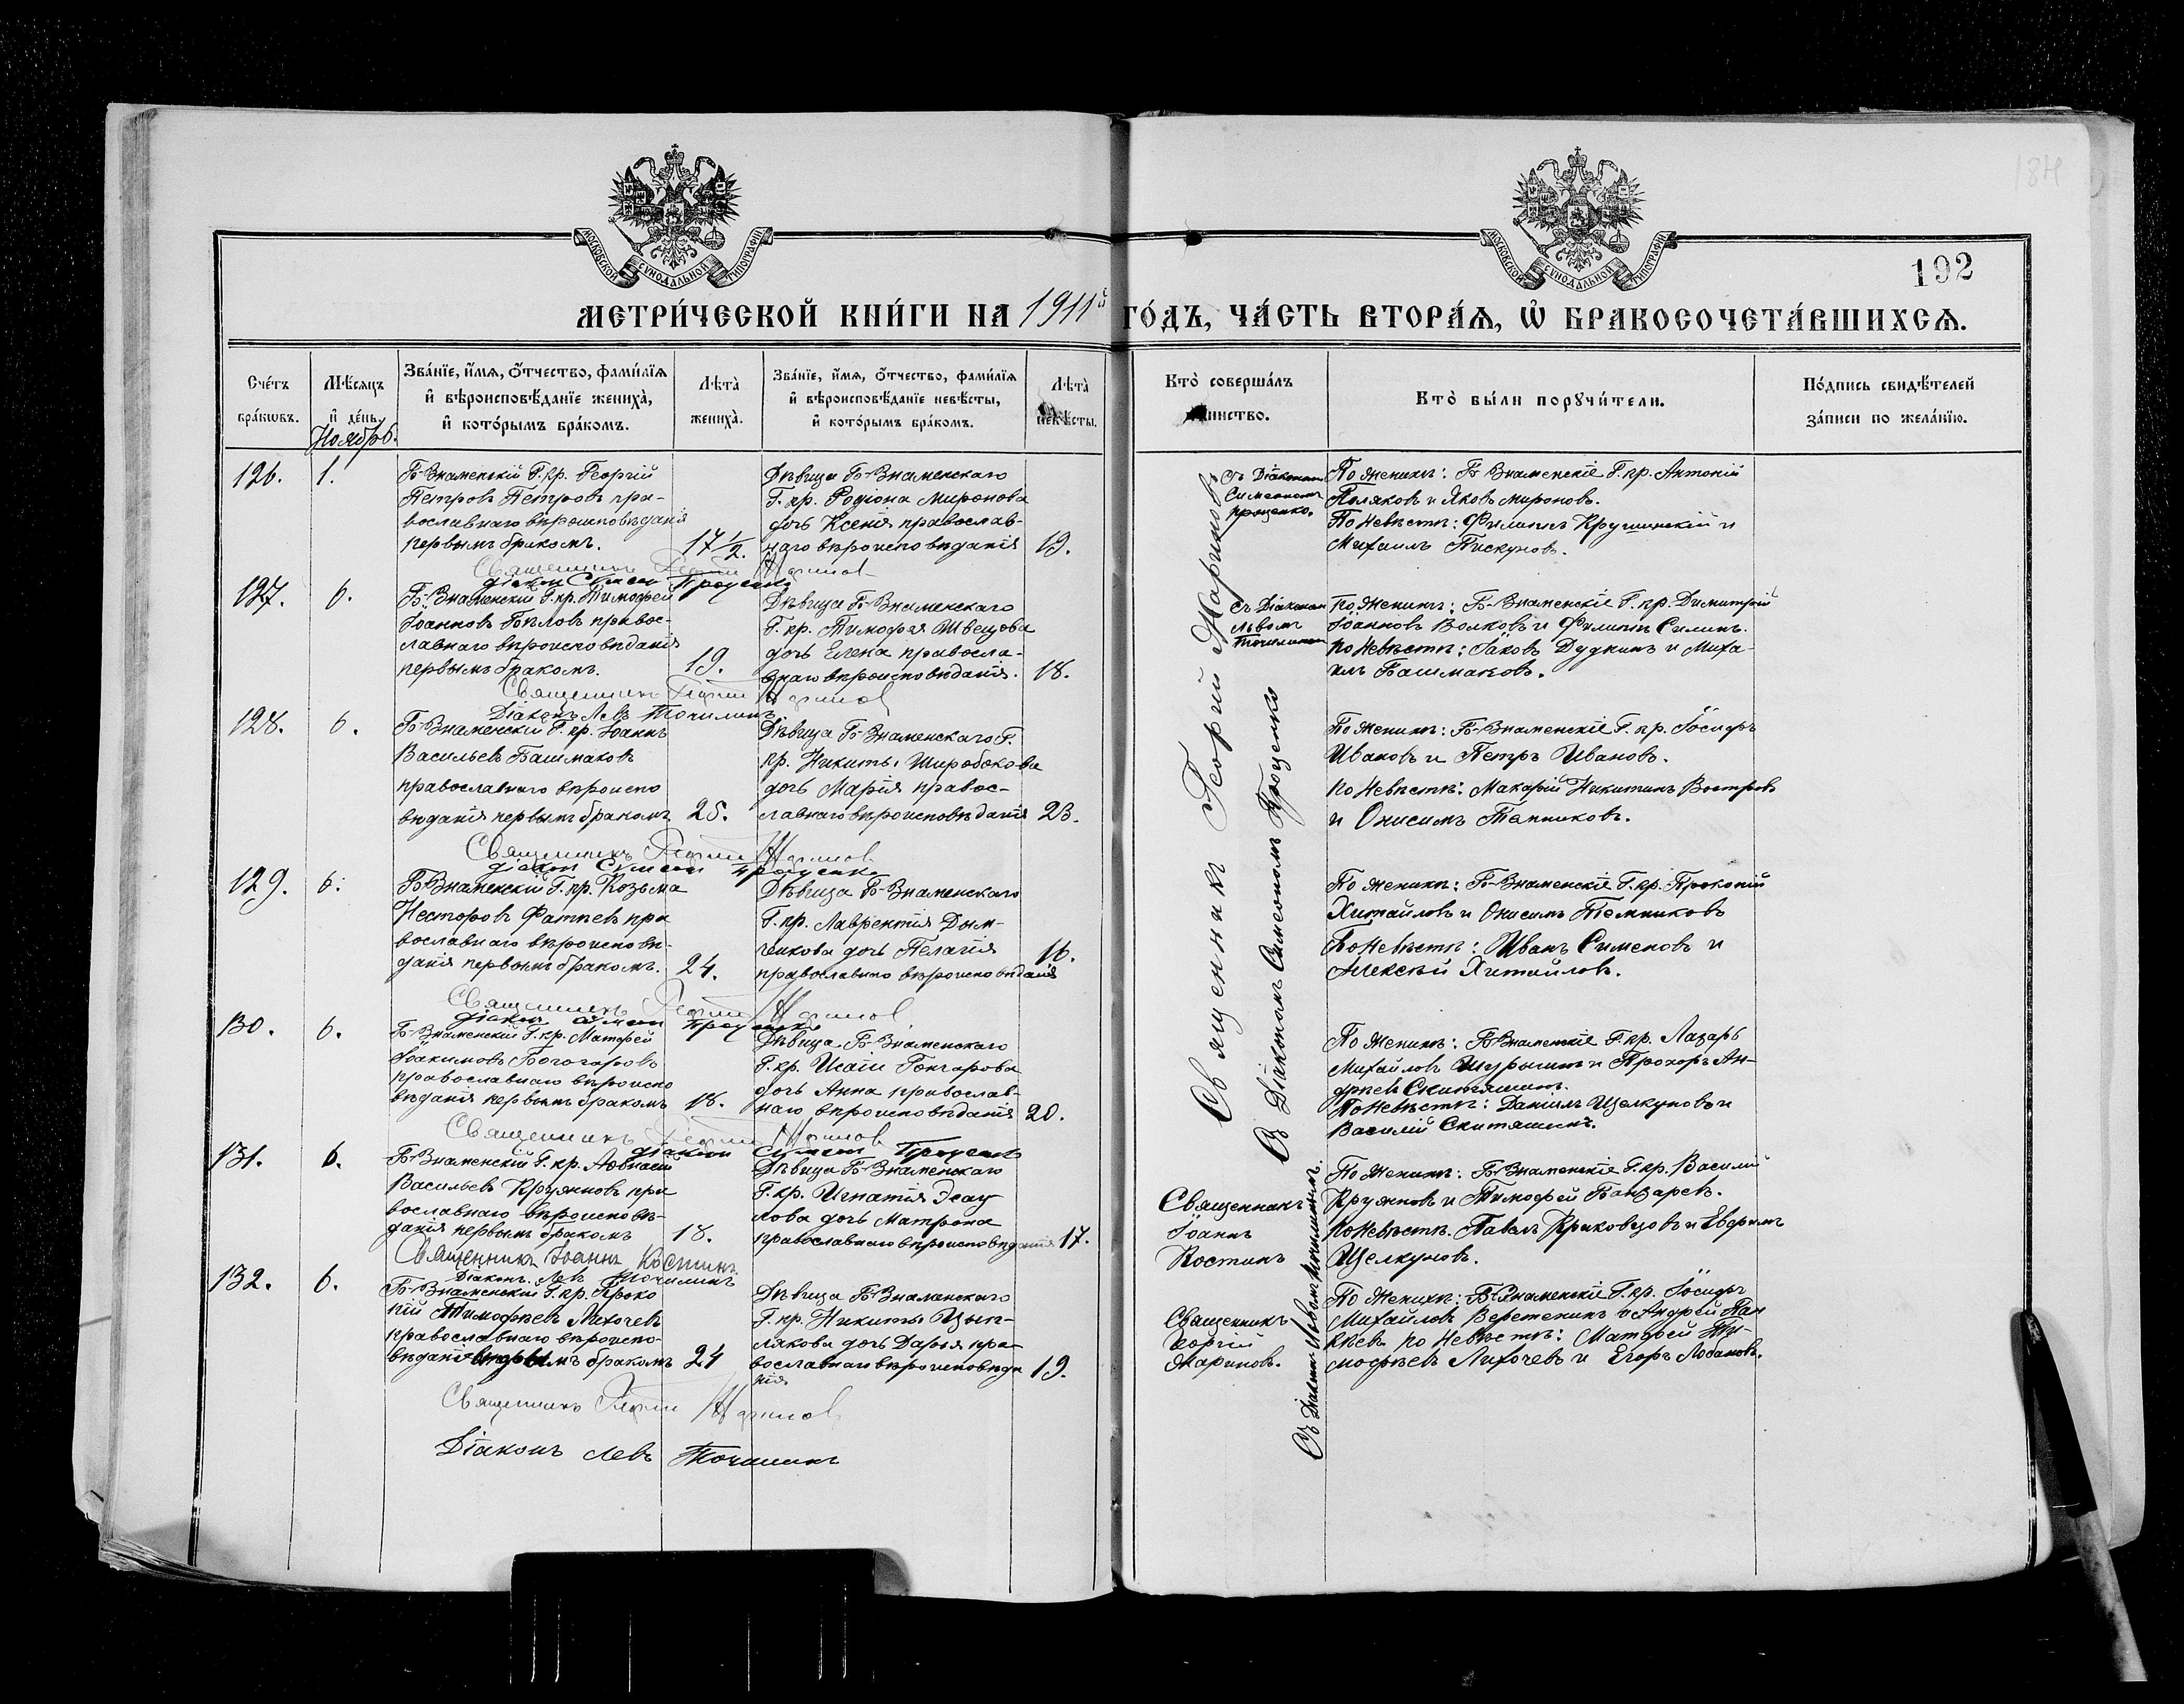 184
192
МОСКОВСКОЙ СѴНОДАЛЬНОЙ ТИПОГРАФІИ
МОСКОВСКОЙ СѴНОДАЛЬНОЙ ТИПОГРАФІИ
МЕТРИ́ЧЕСКОЙ КНИ́ГИ НА 1911й ГО́ДЪ, ЧА́СТЬ ВТОРА́Ѧ, Ѽ БРАКОСОЧЕТА́ВШИХСѦ.
Сче́тъ бра́кѡвъ.
Мѣ́сяцъ и҆ де́нь.
Ноябрь.
Зва́нїе, и҆́мѧ, ѻ҆́тчество, фами́лїѧ
и҆ вѣроисповѣ́данїе жениха̀,
и҆ кото́рымъ бра́комъ.
Лѣта̀ жениха̀.
Зва́нїе, и҆́мѧ, ѻ҆́тчество, фами́лїѧ
и҆ вѣроисповѣ́данїе невѣ́сты,
и҆ кото́рымъ бра́комъ.
Лѣта̀ невѣ́сты.
Кто̀ соверша́лъ
таинство.
Кто̀ бы́ли порꙋчи́тели.
По́дпись свидѣ́телей
за́писи по жела́нїю.
126.
1.
Б-Знаменскій Г. кр. Георгій
Петровъ Петровъ пра-
вославнаго вѣроисповѣданія
первымъ бракомъ.
17 1/2.
Дѣвица Б-Знаменскаго
Г. кр. Родіона Миронова
дочь Ксенія православ-
наго вѣроисповѣданія
19.
Съ Діакономъ
Симеономъ
Проценко.
По женихѣ: Б-Знаменскіе Г. кр. Антоній
Поляковъ и Яковъ Мироновъ.
По невѣстѣ: Филиппъ Крушинскій и
Михаилъ Пискуновъ.
Священникъ Георгій Мариновъ
діакон Симеон Проценко
127.
6.
Б-Знаменскій Г. кр. Тимофей
Іоанновъ Бѣловъ правос-
лавнаго вѣроисповѣданія
первымъ бракомъ.
19.
Дѣвица Б-Знаменскаго
Г. кр. Тимофея Швецова
дочь Елена правосла-
внаго вѣроисповѣданія.
18.
Съ Діакономъ
Львомъ
Точилинымъ
По женихѣ: Б-Знаменскіе Г. кр. Димитрій
Іоанновъ Волковъ и Филиппъ Силинъ.
По невѣстѣ: Іаковъ Дудкинъ и Миха-
илъ Башмаковъ.
Священникъ Георгій Мариновъ
Діаконъ Левъ Точилинъ
128.
6.
Б-Знаменскій Г. кр. Іоаннъ
Васильевъ Башмаковъ
православнаго вѣроиспо
вѣданія первымъ бракомъ
25.
Дѣвица Б-Знаменскаго Г.
кр. Никиты Широбокова
дочь Марія правос-
лавнаго вѣроисповѣданія
23.
По женихѣ: Б-Знаменскіе Г. кр. Іосифъ
Ивановъ и Петръ Ивановъ.
По невѣстѣ: Макарій Никитинъ Востровъ
и Онисимъ Темниковъ.
Священникъ Георгій Мариновъ
діакон Симеон Проценко
129.
6.
Б-Знаменскій Г. кр. Козьма
Несторовъ Фатѣевъ пра
вославнаго вѣроисповѣ-
данія первымъ бракомъ.
24.
Дѣвица Б-Знаменскаго
Г. кр. Лаврентія Дом-
ченкова дочь Пелагія
православнаго вѣроисповѣданія
16.
По женихѣ: Б-Знаменскіе Г. кр. Прокопій
Хитайловъ и Онисимъ Темниковъ
По невѣстѣ: Иванъ Сименовъ и
Алексѣй Хитайловъ.
Священникъ Георгій Мариновъ
діакон Симеон Проценко
130.
6.
Б-Знаменскій Г. кр. Матфей
Іоакимовъ Богогаровъ
православнаго вѣроиспо
вѣданія первымъ бракомъ
18.
Дѣвица Б-Знаменскаго
Г. кр. Исаіи Гончарова
дочь Анна православ-
наго вѣроисповѣданія
20.
По женихѣ: Б-Знаменскіе Г. кр. Лазарь
Михайловъ Шурыгинъ и Прохоръ Ан-
дреевъ Скитяшинъ.
По невѣстѣ: Даніилъ Щелкуновъ и
Василій Скитяшинъ.
Священникъ Георгій Мариновъ
діакон Симеон Проценко
Священникъ Георгій Мариновъ
Съ Діакономъ Симеономъ Проценко
131.
6.
Б-Знаменскій Г. кр. Аѳанасій
Васильевъ Кружновъ пра
вославнаго вѣроисповѣ-
данія первымъ бракомъ
18.
Дѣвица Б-Знаменскаго
Г. кр. Игнатія Эсау
лова дочь Матрона
православнаго вѣроисповѣданія
17.
Священникъ
Іоаннъ
Костинъ
По женихѣ: Б-Знаменскіе Г. кр. Василій
Кружновъ и Тимофей Бондаревъ.
По невѣстѣ. Павелъ Криковцовъ и Евфимъ
Щелкуновъ.
Священникъ Іоаннъ Костинъ.
Діаконъ Левъ Точилинъ
132.
6.
Б-Знаменскій Г. кр. Проко
пій Тимофѣевъ Лихочевъ
православнаго вѣроиспо-
вѣданія вторымъ бракомъ
24
Дѣвица Б-Знаменскаго
Г. кр. Никиты Цып-
лякова дочь Дарья пра-
вославнаго вѣроисповѣда
нія
19.
Священникъ
Георгій
Мариновъ.
Съ Діакономъ Львомъ Точилинымъ.
По женихѣ: Б-Знаменскіе Г. кр. Іосифъ
Михайловъ Веретенинъ и Андрей Пан
кѣевъ по невѣстѣ: Матфей Ти-
мофѣевъ Лихочевъ и Егоръ Лобановъ.
Священникъ Георгій Мариновъ
Діаконъ Левъ Точилинъ